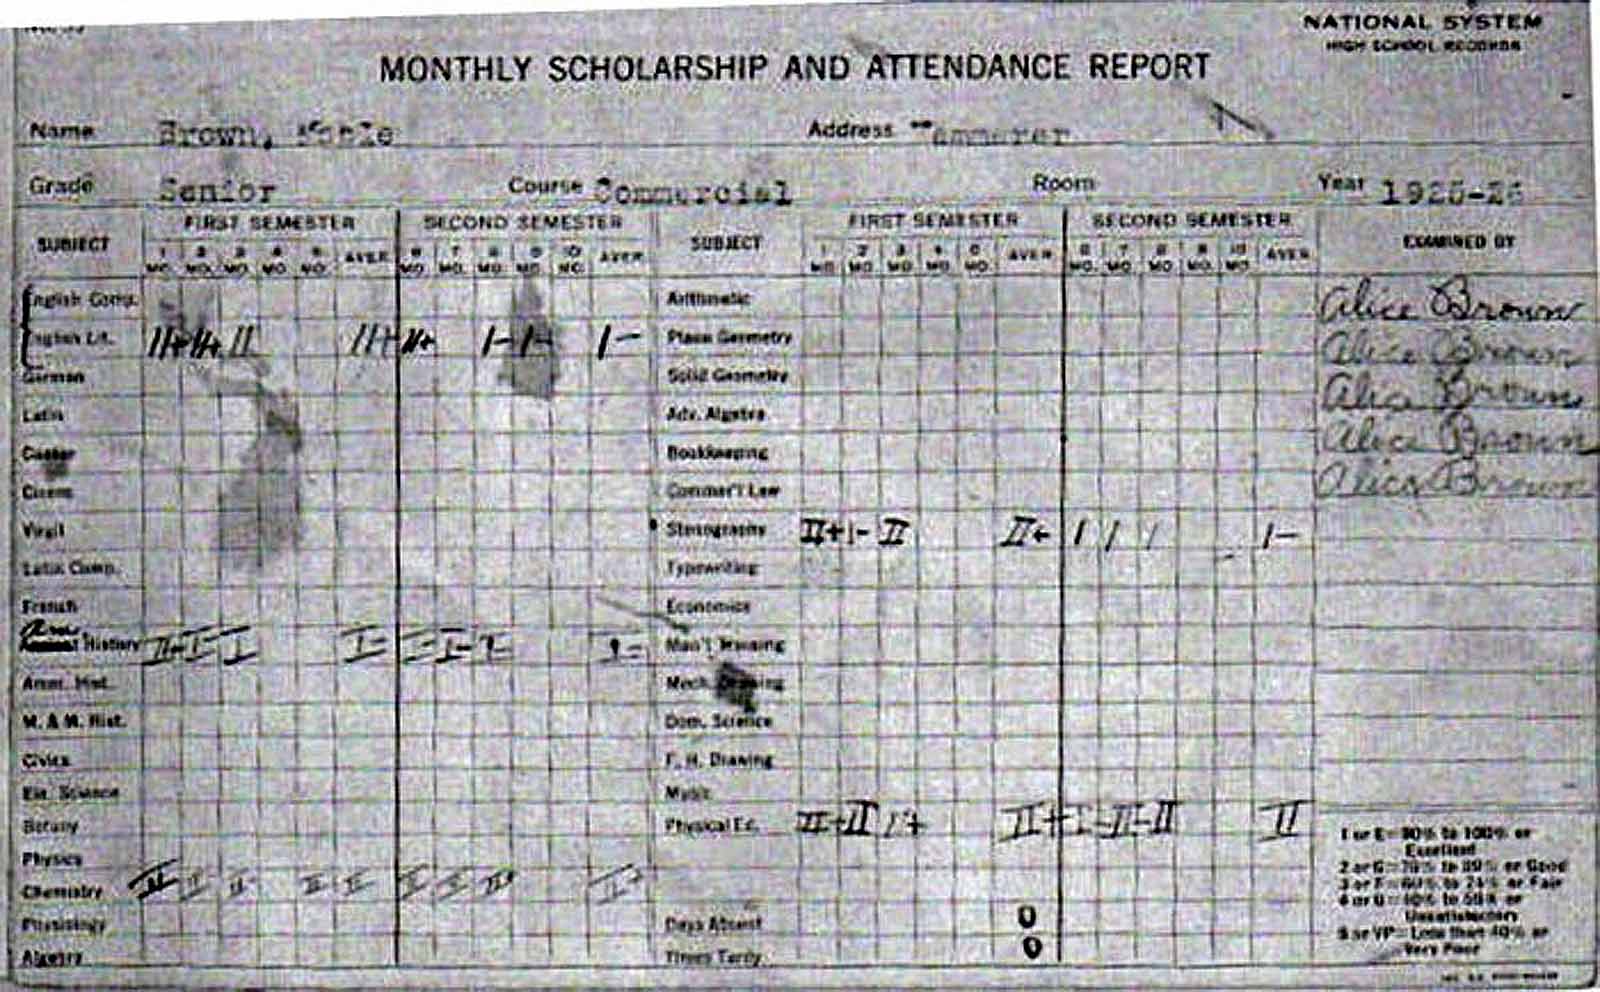 NATIONAL SYSTEM
HIGH SCHOOL RECORDS
MONTHLY SCHOLARSHIP AND ATTENDANCE REPORT
Name Brown, Address
Grade Senior Course Commercial Room Year
SUBJECT FIRST SEMESTER SECOND SEMESTER SUBJECT FIRST SEMESTER SECOND SEMESTER EXAMINED BY
1 MO. 2 MO. 3 MO. 4 MO. 5 MO. AVER. 6 MO. 7 MO. 8 MO. 9 MO. 10 MO. AVER. 1 MO. 2 MO. 3 MO. 4 MO. 5 MO. AVER. 6 MO. 7 MO. 8 MO. 9 MO. 10 MO. AVER.
English Comp. Arithmetic Alice Brown
English Lit. II+ II+ II II+ II+ I- I- I- Plane Geometry Alice Brown
German Solid Geometry Alice Brown
Latin Adv. Algebra Alice Brown
Caesar Bookkeeping Alice Brown
Cicero Commer'l Law
Virgil Stenography II+ I- II II+ I I I I-
Latin Comp. Typewriting
French Economics
History Man'l Training
Amer. Hist. Mech. Drawing
M. & M. Hist. Dom. Science
Civics F. H. Drawing
Ele. Science Music
Botany Physical Ed. II
Physics
Chemistry
Physiology Days Absent 0
Algebra Times Tardy 0
1 or E = 90% to 100% or
Excellent
2 or G = 75% to 89% or Good
3 or F = 60% to 74% or Fair
4 or U = 40% to 59% or
Unsatisfactory
5 or VP = Less than 40% or
Very Poor